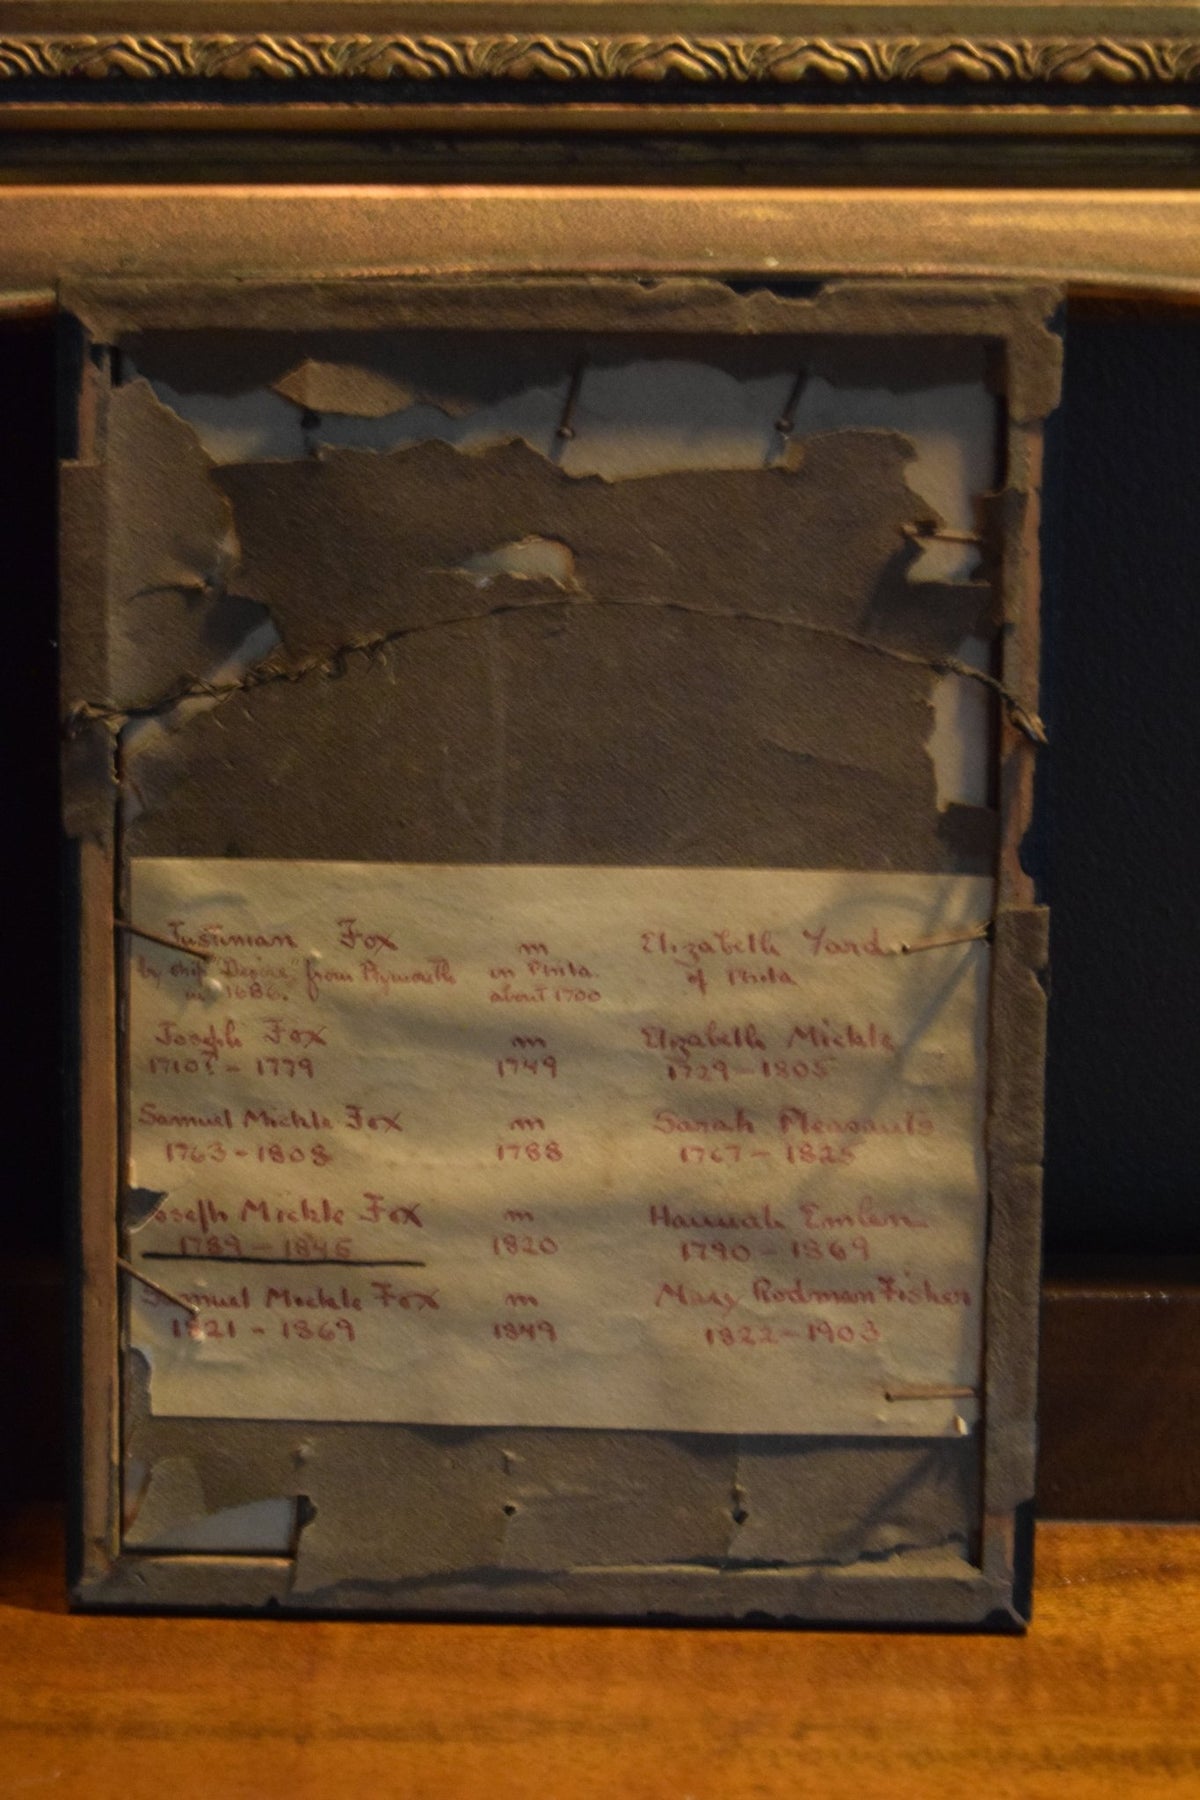 Justinian Fox m Elizabeth Yard
by ship "Desire" from Plymouth in Phila. of Phila
in 1686. about 1700
Joseph Fox m Elizabeth Mickle
1710? - 1779 1749 1729 - 1805
Samuel Mickle Fox m Sarah Pleasants
1763 - 1808 1788 1767 - 1825
Joseph Mickle Fox m Hannah Emlen
1789 - 1845 1820 1790 - 1869
Samuel Mickle Fox m Mary Rodman Fisher
1821 - 1869 1849 1822 - 1903